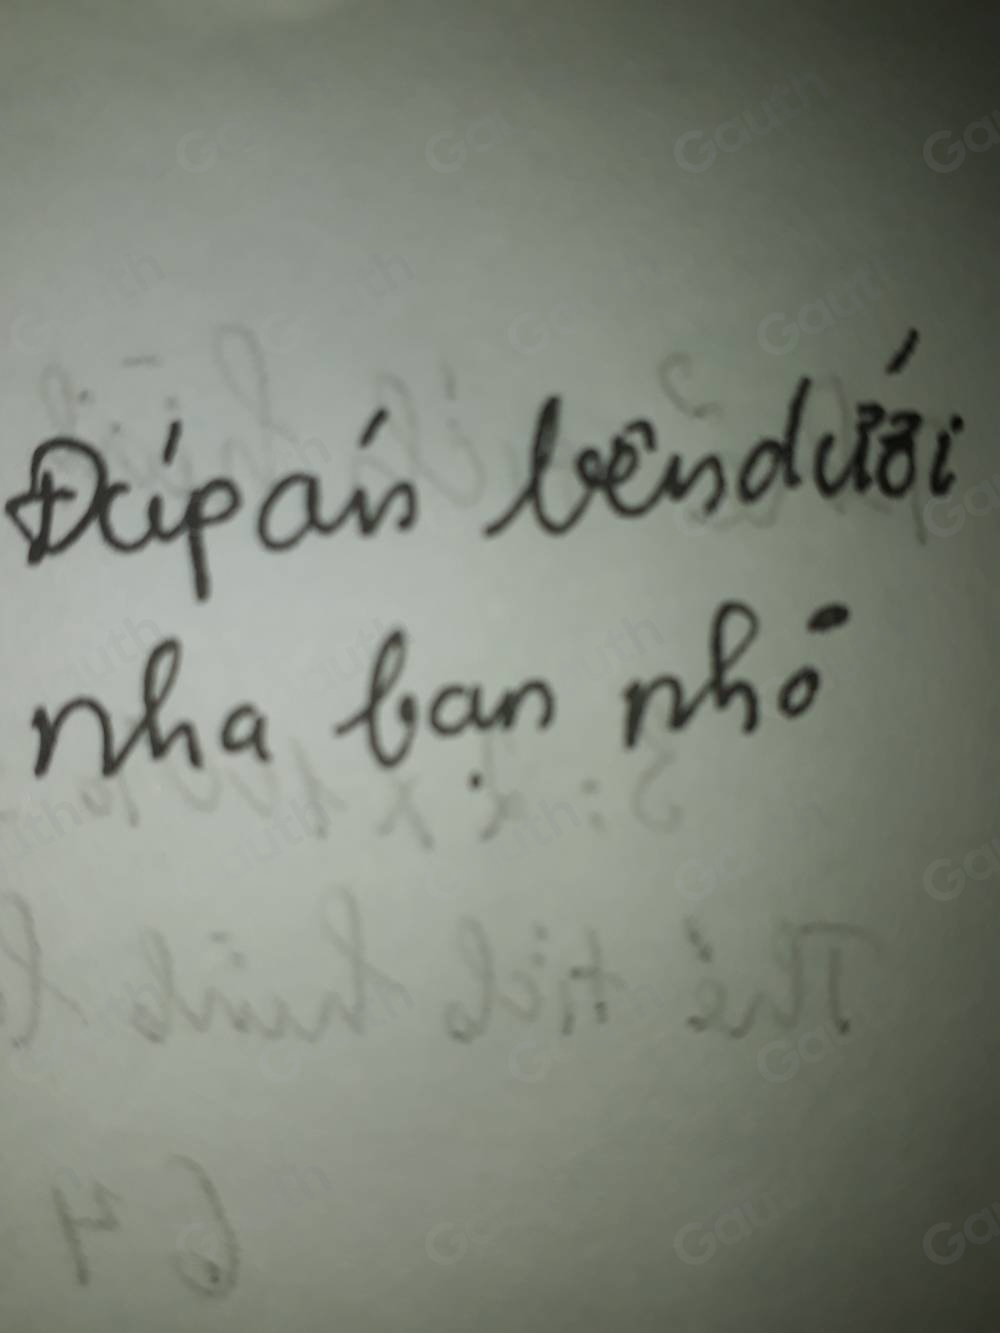 Đáp án bên dưới
nha bạn nhỏ